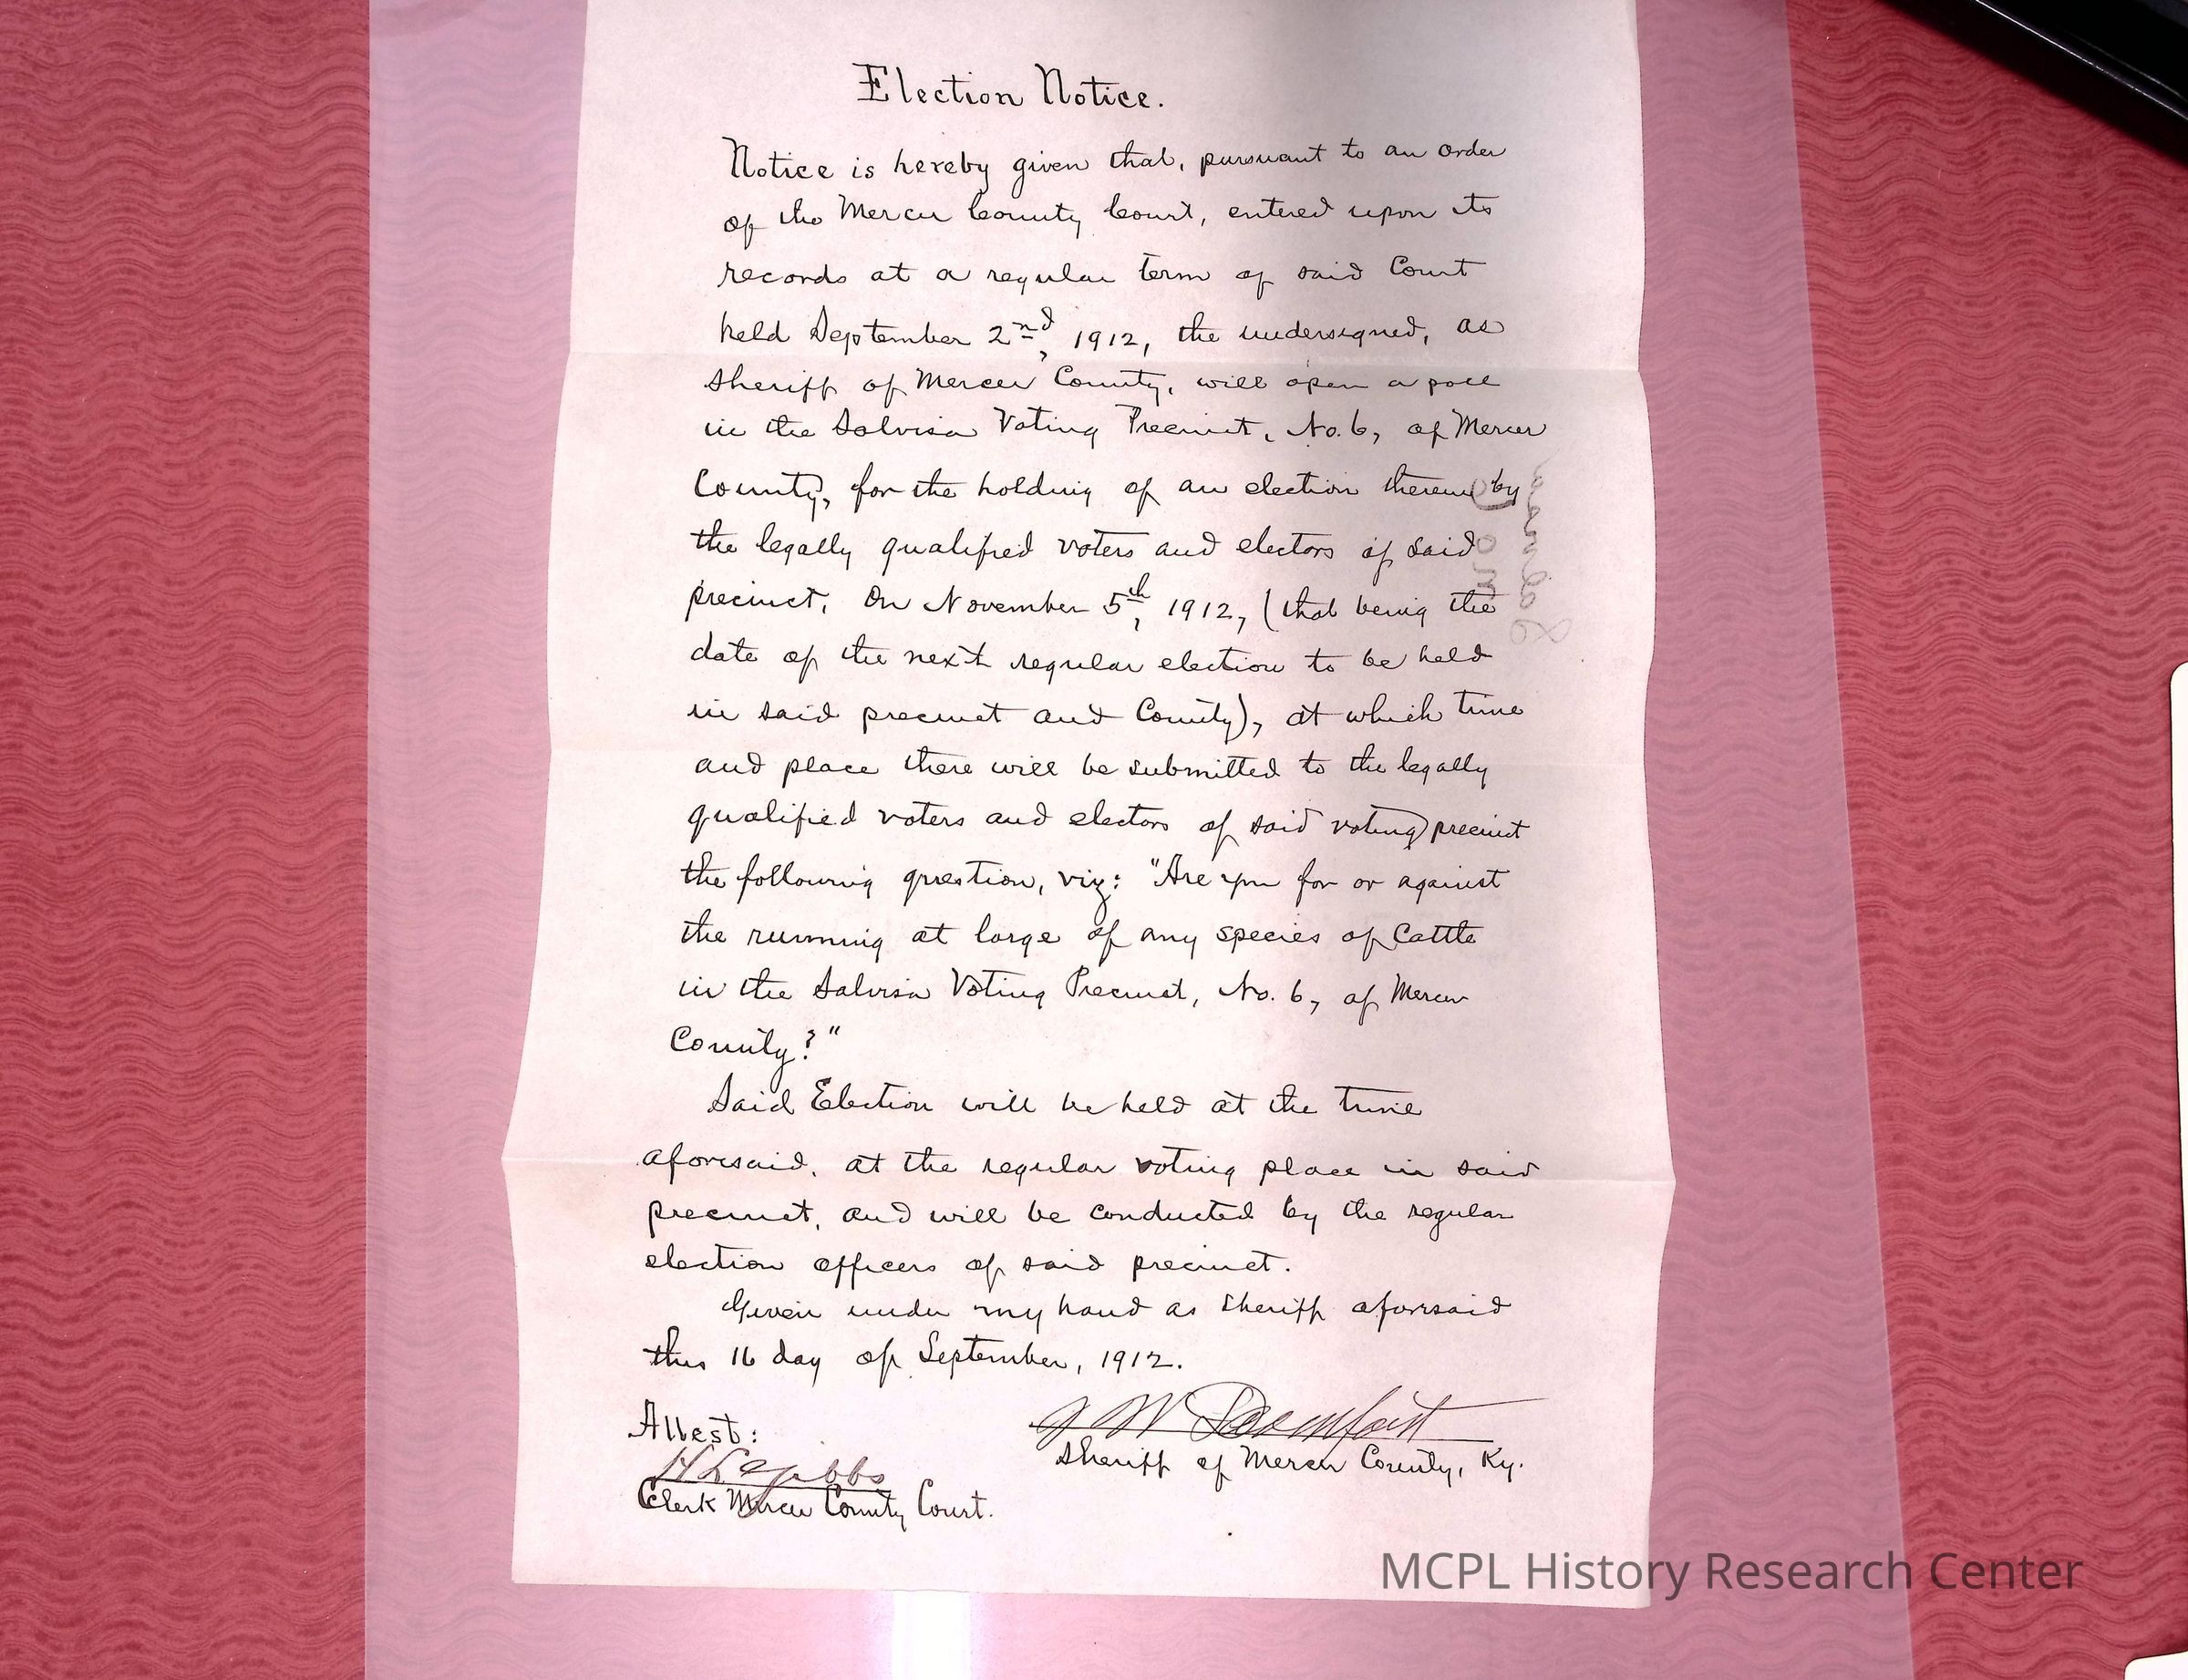 Election Notice.
Notice is hereby given that, pursuant to an order
of the Mercer County Court, entered upon its
records at a regular term of said Court
held September 2nd, 1912, the undersigned, as
Sheriff of Mercer County, will open a poll
in the Salvisa Voting Precinct, No. 6, of Mercer
County, for the holding of an election therein by
the legally qualified voters and electors of said
precinct, On November 5th, 1912, (that being the
date of the next regular election to be held
in said precinct and County), at which time
and place there will be submitted to the legally
qualified voters and electors of said voting precinct
the following question, viz: "Are you for or against
the running at large of any species of Cattle
in the Salvisa Voting Precinct, No. 6, of Mercer
County?"
Said Election will be held at the time
aforesaid, at the regular voting place in said
precinct, and will be conducted by the regular
election officers of said precinct.
Given under my hand as Sheriff aforesaid
this 16 day of September, 1912.
Attest:
J W
Sheriff of Mercer County, Ky.
H L Gibbs
Clerk Mercer County Court.
MCPL History Research Center